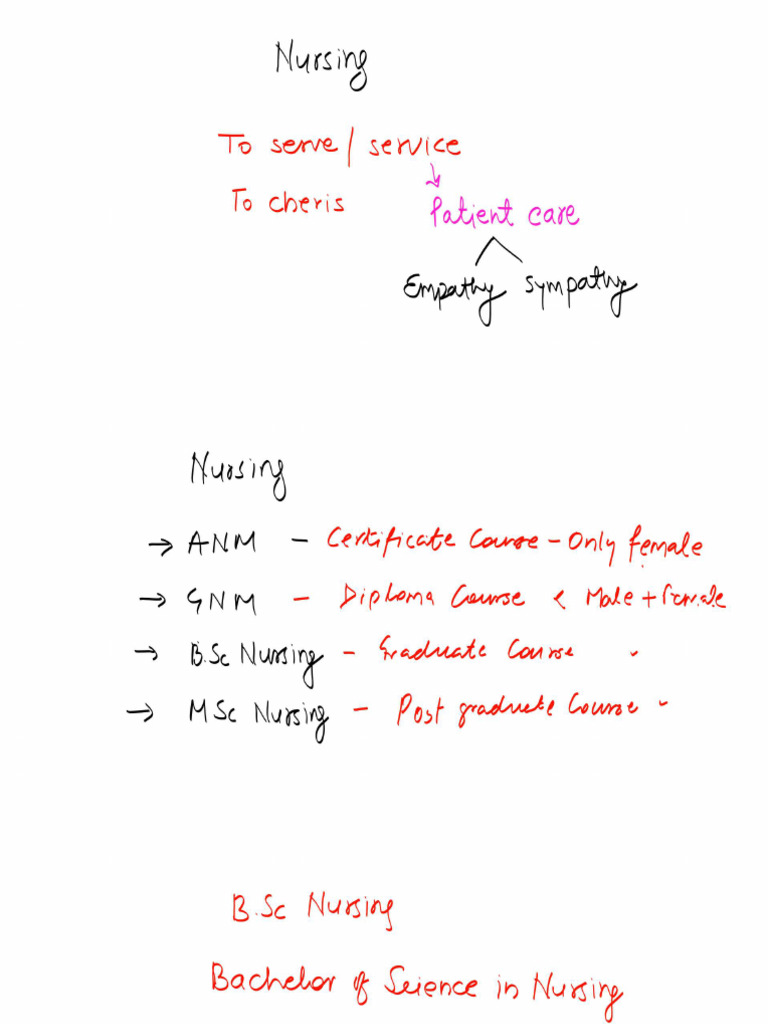 Nursing
To serve / service
To cheris
Patient care
Empathy Sympathy
Nursing
→ ANM - Certificate Course - Only female
→ GNM - Diploma Course < Male + female
→ B.Sc Nursing - Graduate Course "
→ MSc Nursing - Post graduate Course "
B.Sc Nursing
Bachelor of Science in Nursing